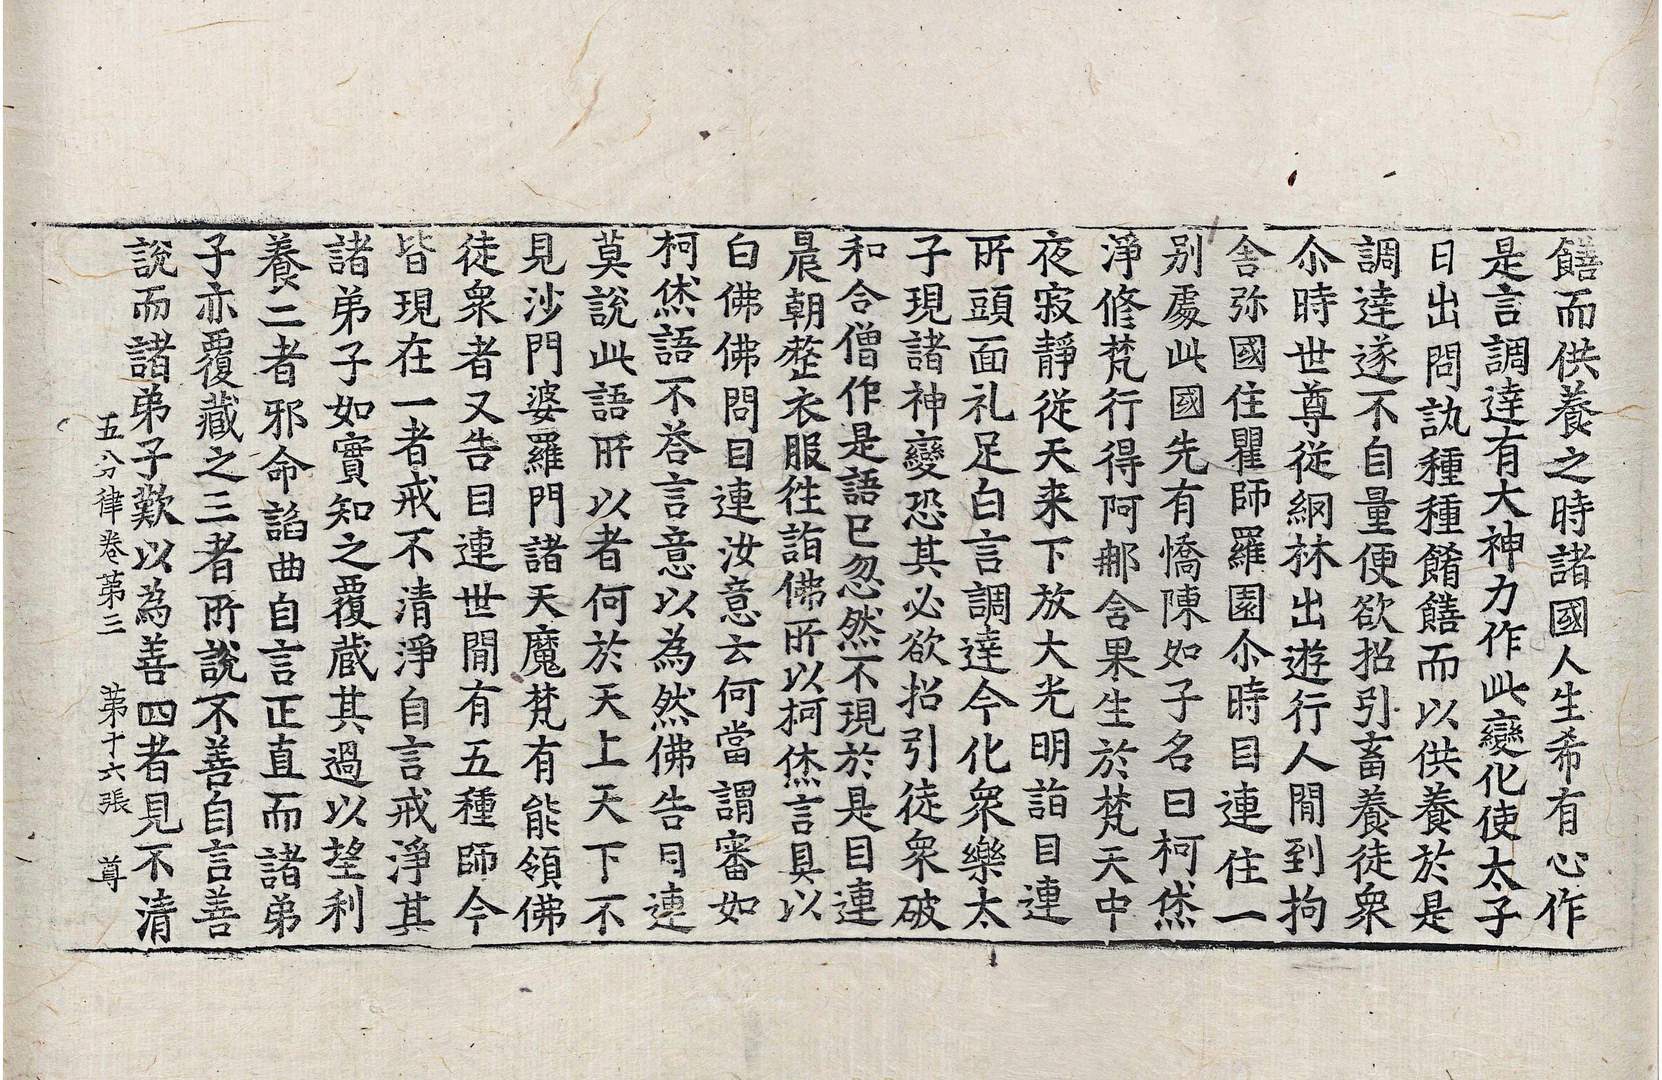 饍而供養之時諸國人生希有心作
是言調達有大神力作此變化使太子
日出問訊種種餚饍而以供養於是
調達遂不自量便欲招引畜養徒衆
尒時世尊從網林出遊行人閒到拘
舍弥國住瞿師羅園尒時目連住一
別處此國先有憍陳如子名曰柯烋
淨修梵行得阿那含果生於梵天中
夜寂靜從天来下放大光明詣目連
所頭面礼足白言調達今化衆樂太
子現諸神變恐其必欲招引徒衆破
和合僧作是語已忽然不現於是目連
晨朝整衣服往詣佛所以柯烋言具以
白佛佛問目連汝意云何當謂審如
柯烋語不荅言意以為然佛告目連
莫說此語所以者何於天上天下不
見沙門婆羅門諸天魔梵有能領佛
徒衆者又告目連世閒有五種師今
皆現在一者戒不清淨自言戒淨其
諸弟子如實知之覆藏其過以望利
養二者邪命諂曲自言正直而諸弟
子亦覆藏之三者所說不善自言善
說而諸弟子歎以為善四者見不清
五分律卷第三　第十六張　尊